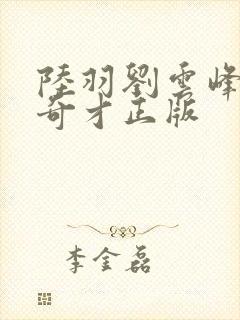 陸羽劉雲峰
奇才正版
李金磊